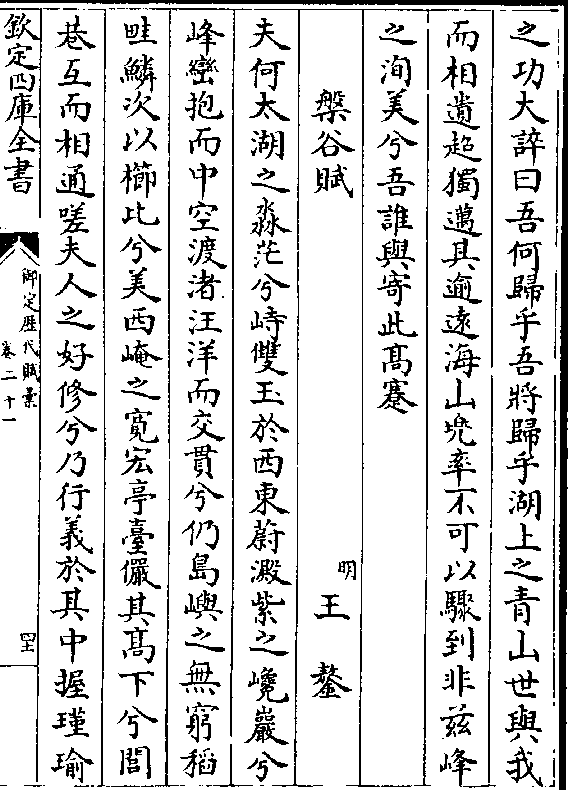 之功大誶曰吾何歸乎吾將歸乎湖上之青山世與我
而相遺超獨邁其逾遠海山兠率不可以驟到非兹峰
之洵美兮吾誰與寄此髙蹇
槃谷賦
明王鏊
夫何太湖之淼茫兮峙雙玉於西東蔚澱紫之巉巖兮
峰巒抱而中空渡渚汪洋而交貫兮仍島嶼之無窮稻
畦鱗次以櫛比兮美西崦之寛宏亭臺儼其髙下兮閭
巷互而相通嗟夫人之好修兮乃行義於其中握瑾瑜
欽定四庫全書
御定歴代賦彙
卷二十一